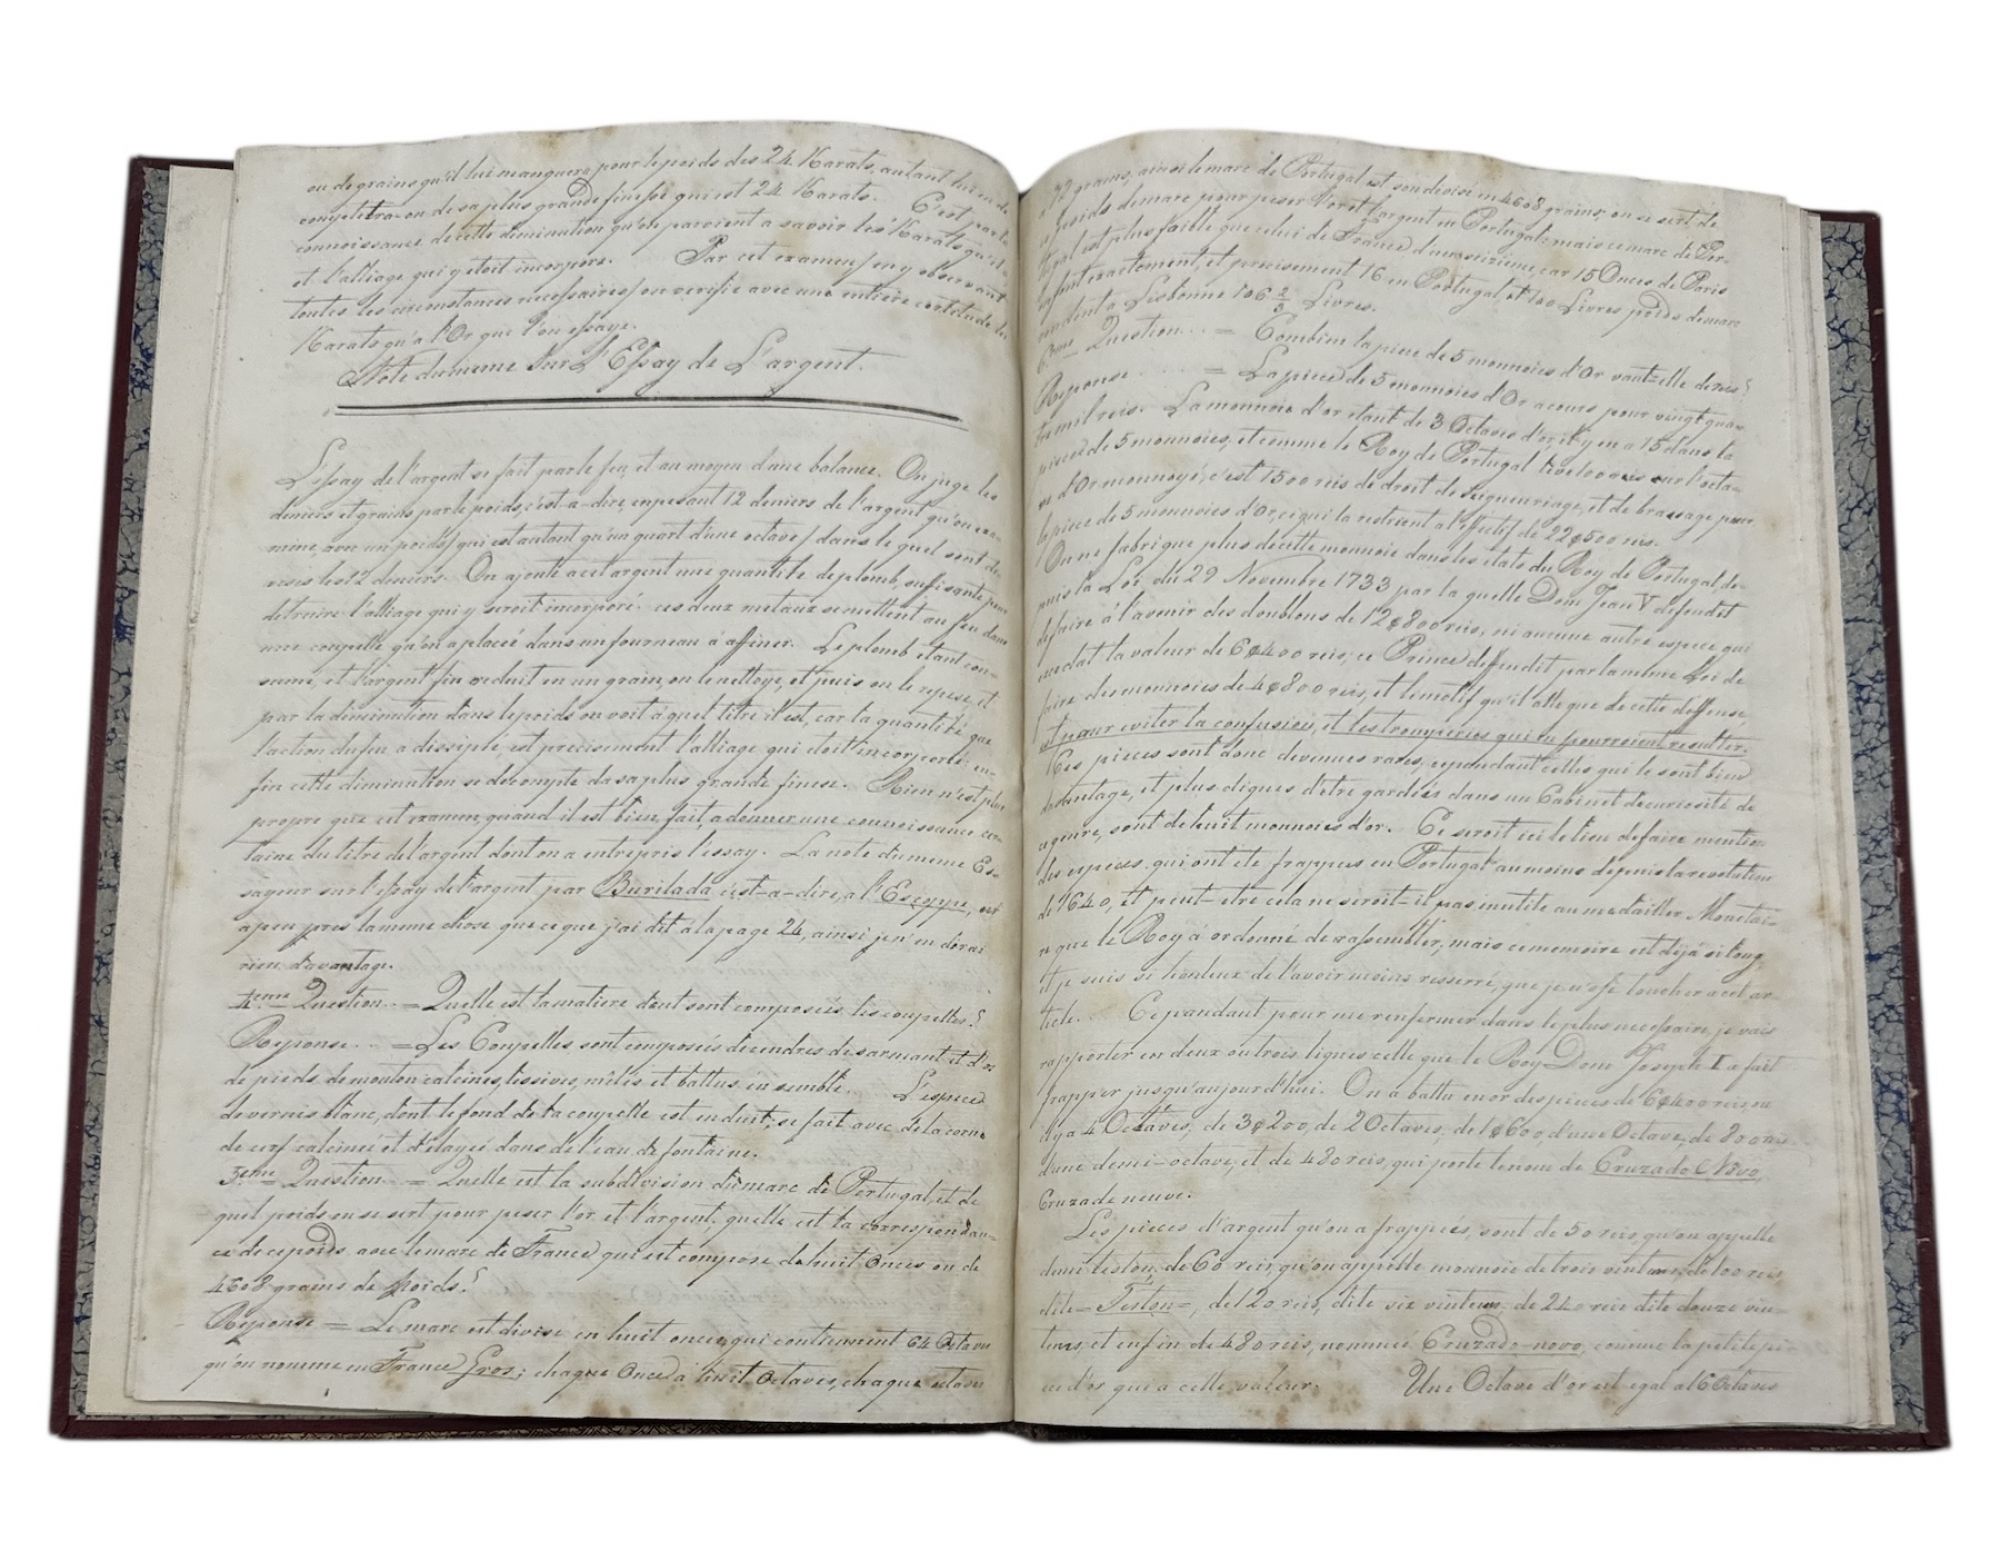 ou de grains qu'il lui manquera pour le poids des 24 Karats, autant lui en de
completra-on de sa plus grande finesse qui est 24 Karats. C'est par la
connoissance de cette diminution qu'on parvient a savoir les Karats qu'il
et l'alliage qui y etoit incorporé. Par cet examen en y observant
toutes les circonstances necessaires on verifie avec une entiere certitude les
Karats qu'a l'Or que l'on essaye.
Note du meme sur L'Essay de L'argent.
L'essay de l'argent se fait par le feu, et au moyen d'une balance. On juge les
deniers et grains par le poids, c'est-a-dire, en pesant 12 deniers de l'argent qu'on exa-
mine, avec un poids qui est autant qu'un quart d'une octave dans le quel sont di-
visés les 12 deniers. On ajoute a cet argent une quantité de plomb, suffisante pour
detruire l'alliage qui y seroit incorporé. ces deux metaux se mettent au feu dans
une coupelle qu'on a placée dans un fourneau à affiner. Le plomb etant con-
sumé, et l'argent fin reduit en un grain, on le nettoye, et puis on le repese, et
par la diminution dans le poids on voit à quel titre il est, car la quantité que
l'action du feu a dissipté, est precisement l'alliage qui etoit incorporé: en-
fin cette diminution se decompte da sa plus grande finesse. Rien n'est plus
propre que cet examen, quand il est bien fait, a donner une connoissance cer-
taine du titre de l'argent dont on a entrepris l'essay. La note du meme Es-
sayeur sur l'essay de l'argent par Burilada c'est-a-dire, a l'Escoppe, est
a peu pres la meme chose que ce que j'ai dit a la page 24, ainsi je n'en dirai
rien d'avantage.
4eme Question.. = Quelle est la matiere dont sont composées les coupelles?
Reponse... = Les Coupelles sont composés de cendres de sarmant et d'os
de pieds de mouton calcines, lissives, mêlés et battus en semble. L'espece
de vernis blanc, dont le fond de la coupelle est induit, se fait avec de la corne
de cerf calcinée et d'élayée dans de l'eau de fontaine.
3eme Question.. = Quelle est la subdivision du marc de Portugal, et de
quel poids on se sert pour peser l'or et l'argent, quelle est la correspondan-
ce de ce poids avec le marc de France qui est composé de huit Onces ou de
4608 grains de poids?
Reponse = Le marc est divisé en huit onces, qui contiennent 64 Octaves
qu'on nomme en France Gros; chaque Once a huit Octaves, chaque octave
a 72 grains, ainsi le marc de Portugal est sou devisé en 4608 grains; on se sert de
ce poids de marc pour peser l'or et l'argent en Portugal: mais ce marc de Por-
tugal est plus faible que celui de France d'un seizieme, car 15 Onces de Paris
font exactement, et precisement 16 en Portugal, et 100 Livres poids de marc
rendent a Lisbonne 106 2/3 Livres.
6eme Question... = Combien la piece de 5 monnoies d'Or vaut-elle de reis?
Reponse.... = La piece de 5 monnoies d'Or a cours pour vingt-qua-
tre mil reis. La monnoie d'or etant de 3 Octaves d'or, il y en a 15 dans la
piece de 5 monnoies, et comme le Roy de Portugal leve 100 reis sur l'octa-
ve d'Or monnoyé, c'est 1500 reis de droit de seigneuriage, et de brassage pour
la piece de 5 monnoies d'Or, ce qui la restrient a l'effectif de 22$500 reis.
On ne fabrique plus de cette monnoie dans les états du Roy de Portugal, de-
puis la Loi du 29 Novembre 1733 par la quelle Dom Jean V defendit
de faire à l'avenir des doublons de 12$800 reis, ni aucune autre espece qui
excedat la valeur de 6$400 reis; ce Prince deffendit par la meme Loi de
faire des monnoies de 4$800 reis, et le motif qu'il allegue de cette deffense,
est pour eviter la confusion, et les tromperies qui en pourroient resulter.
Ces pieces sont donc devenues rares, cependant celles qui le sont bien
davantage, et plus dignes d'être gardées dans un Cabinet de curiosité de
ce genre, sont de huit monnoies d'or. Ce seroit ici le lieu de faire mention
des especes qui ont été frappees en Portugal au moins depuis la revolution
de 1640, et peut-etre cela ne seroit-il pas inutile au medailler Monetai-
re que le Roy a ordonné de rassembler; mais ce memoire est déjà si long,
et je suis si honteux de l'avoir moins resserré, que je n'ose toucher a cet ar-
ticle. Cepandant pour me renfermer dans le plus necessaire, je vais
rapporter en deux ou trois lignes celle que le Roy Dom Joseph I a fait
frapper jusqu'aujourd'hui. On a battu en or des pieces de 6$400 reis, ou
il y a 4 Octaves, de 3$200, de 2 Octaves, de 1$600 d'une Octave, de 800 reis
d'une demi-octave, et de 480 reis, qui porte le nom de Cruzado Novo,
Cruzade neuve.
Les pieces d'argent qu'on a frappées, sont de 50 reis, qu'on appelle
demi teston, de 60 reis, qu'on appelle monnoie de trois vintens, de 100 reis,
dite = Teston =, de 120 reis, dite six vintens, de 240 reis dite douze vin-
tens, et enfin de 480 reis, nommée Cruzado novo, comme la petite pie-
ce d'or qui a cette valeur. Une Octave d'or est egal a 16 Octaves